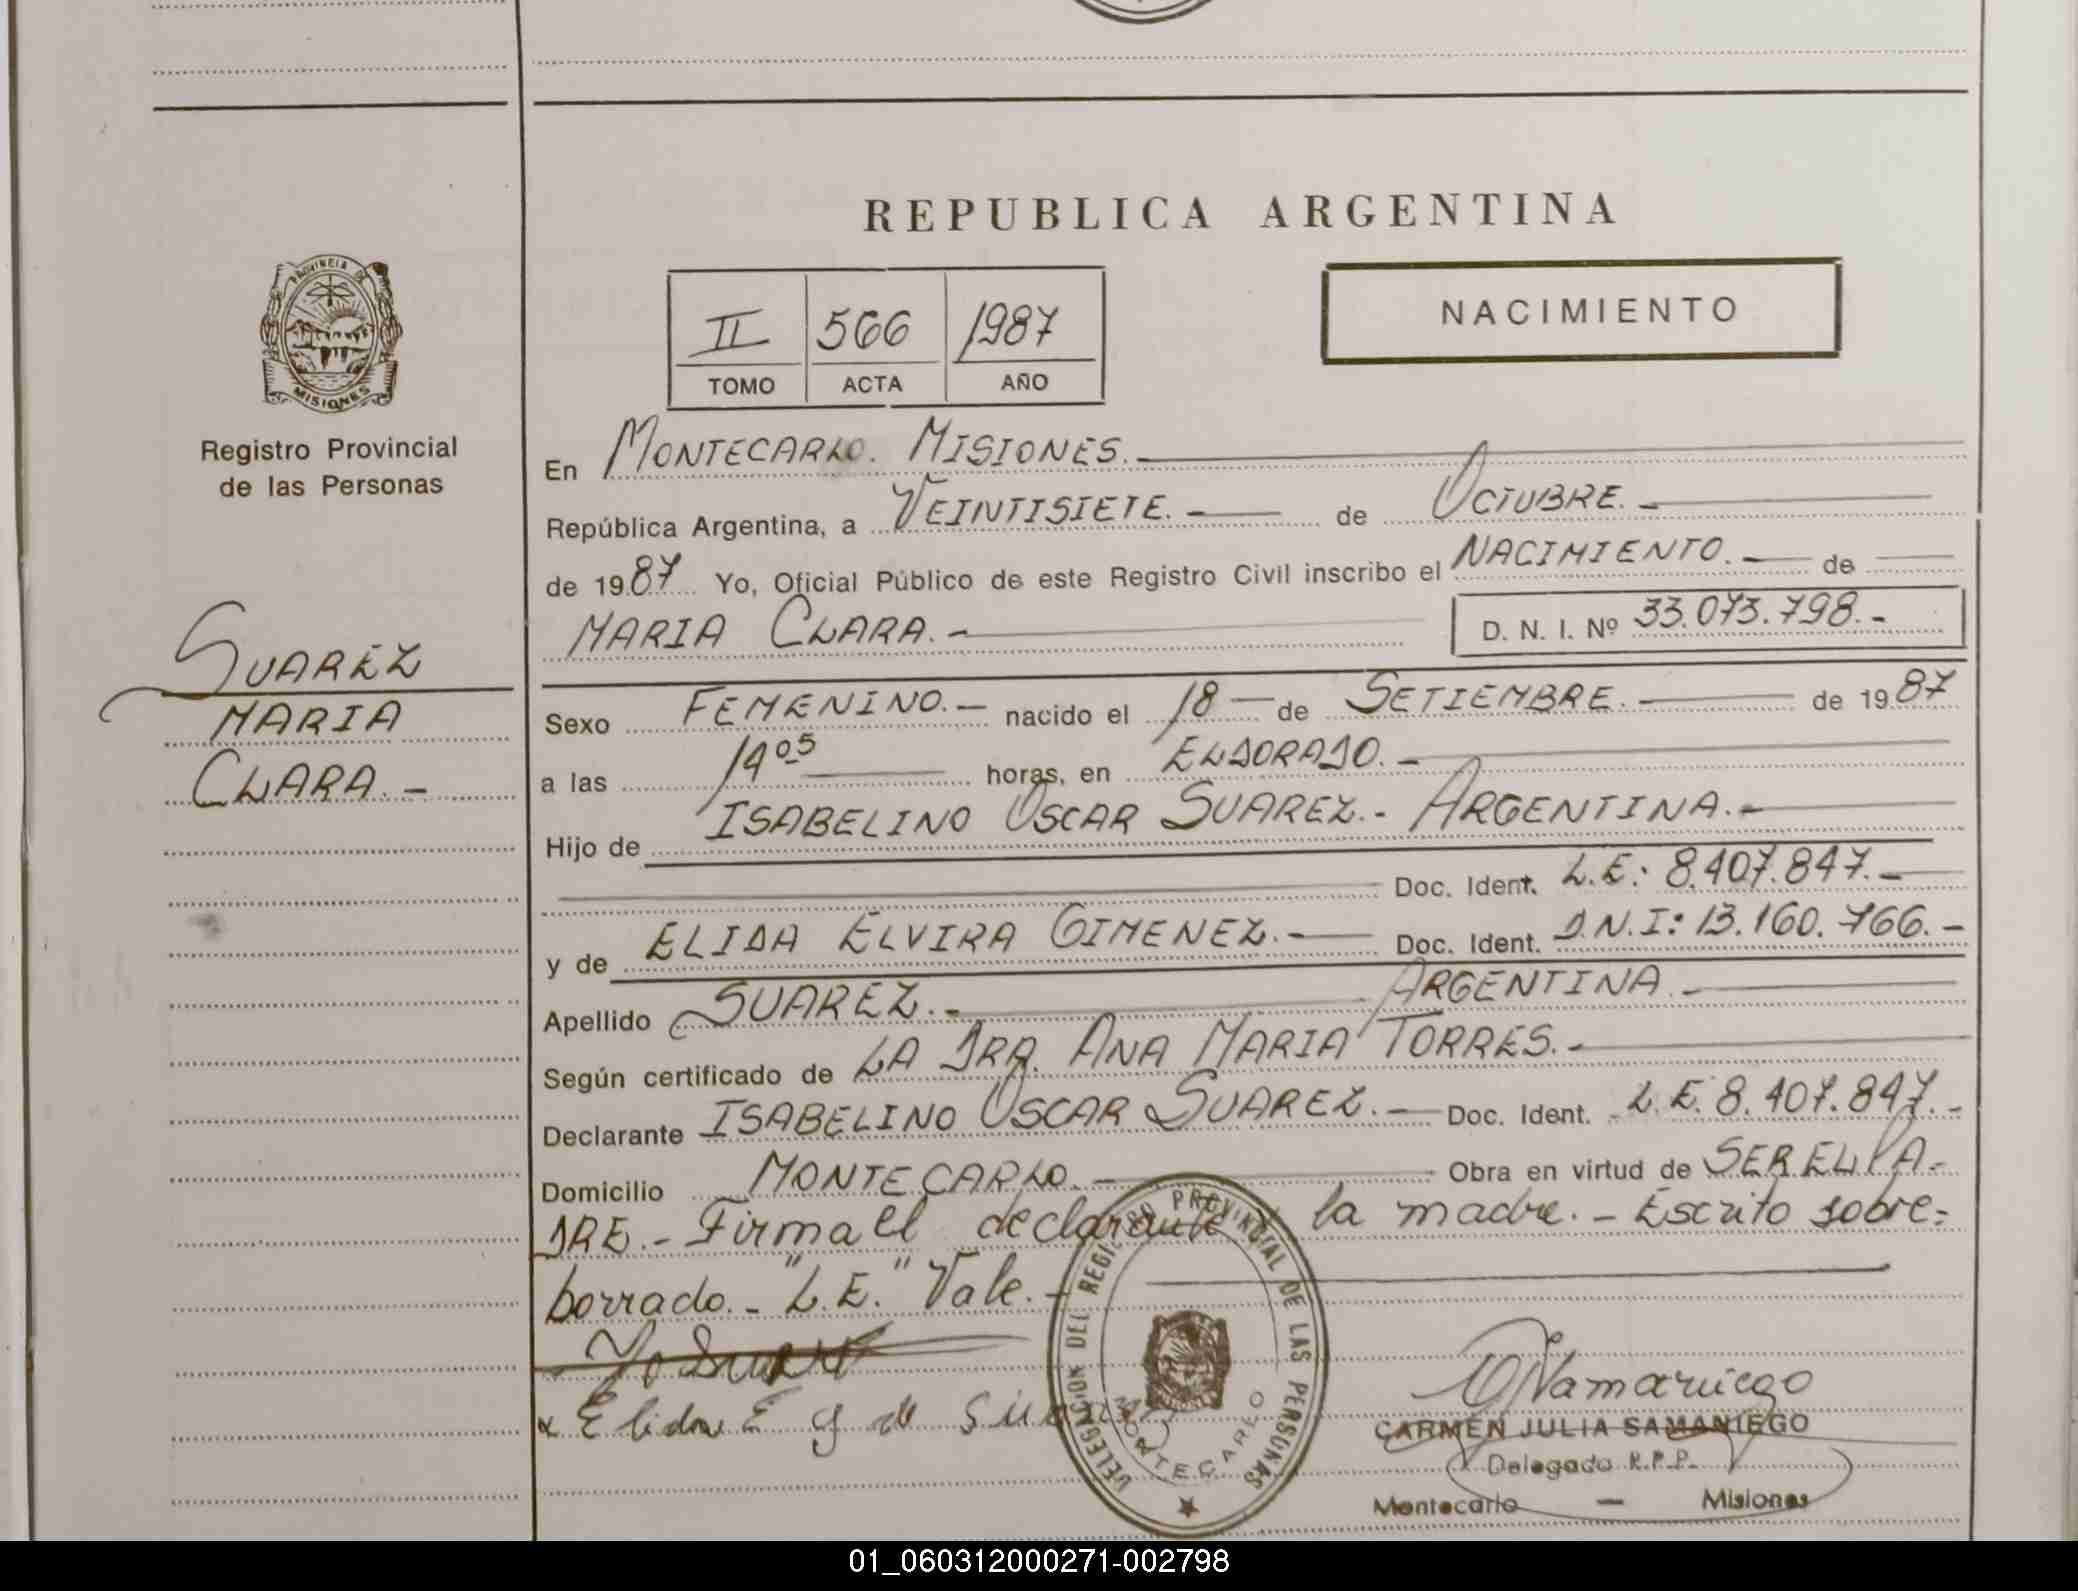 REPUBLICA ARGENTINA
PROVINCIA DE
MISIONES
Registro Provincial
de las Personas
II 566 1987
TOMO ACTA AÑO
NACIMIENTO
SUAREZ
MARIA
CLARA.-
En MONTECARLO. MISIONES.
República Argentina, a VEINTISIETE.- de OCTUBRE.-
de 1987 Yo, Oficial Público de este Registro Civil inscribo el NACIMIENTO.- de
MARIA CLARA.- D. N. I. Nº 33.073.798.-
Sexo FEMENINO.- nacido el 18 de SETIEMBRE.- de 1987
a las 19 05 horas, en ELDORADO.-
Hijo de ISABELINO OSCAR SUAREZ.- ARGENTINA.-
Doc. Ident. L.E.: 8.407.847.-
y de ELIDA ELVIRA GIMENEZ.- Doc. Ident. D.N.I: 13.160.766.-
Apellido SUAREZ.- ARGENTINA.-
Según certificado de LA DRA. ANA MARIA TORRES.-
Declarante ISABELINO OSCAR SUAREZ.- Doc. Ident. L.E. 8.407.847.-
Domicilio MONTECARLO.- Obra en virtud de SER EL PA-
DRE.- Firma el declarante y la madre.- Escrito sobre-
borrado.- "L.E." Vale.-
Elida E G de Suarez
DELEGACION DEL REGISTRO PROVINCIAL DE LAS PERSONAS
MONTECARLO
CARMEN JULIA SAMANIEGO
Delegado R.P.P.
Montecarlo - Misiones
01_060312000271-002798